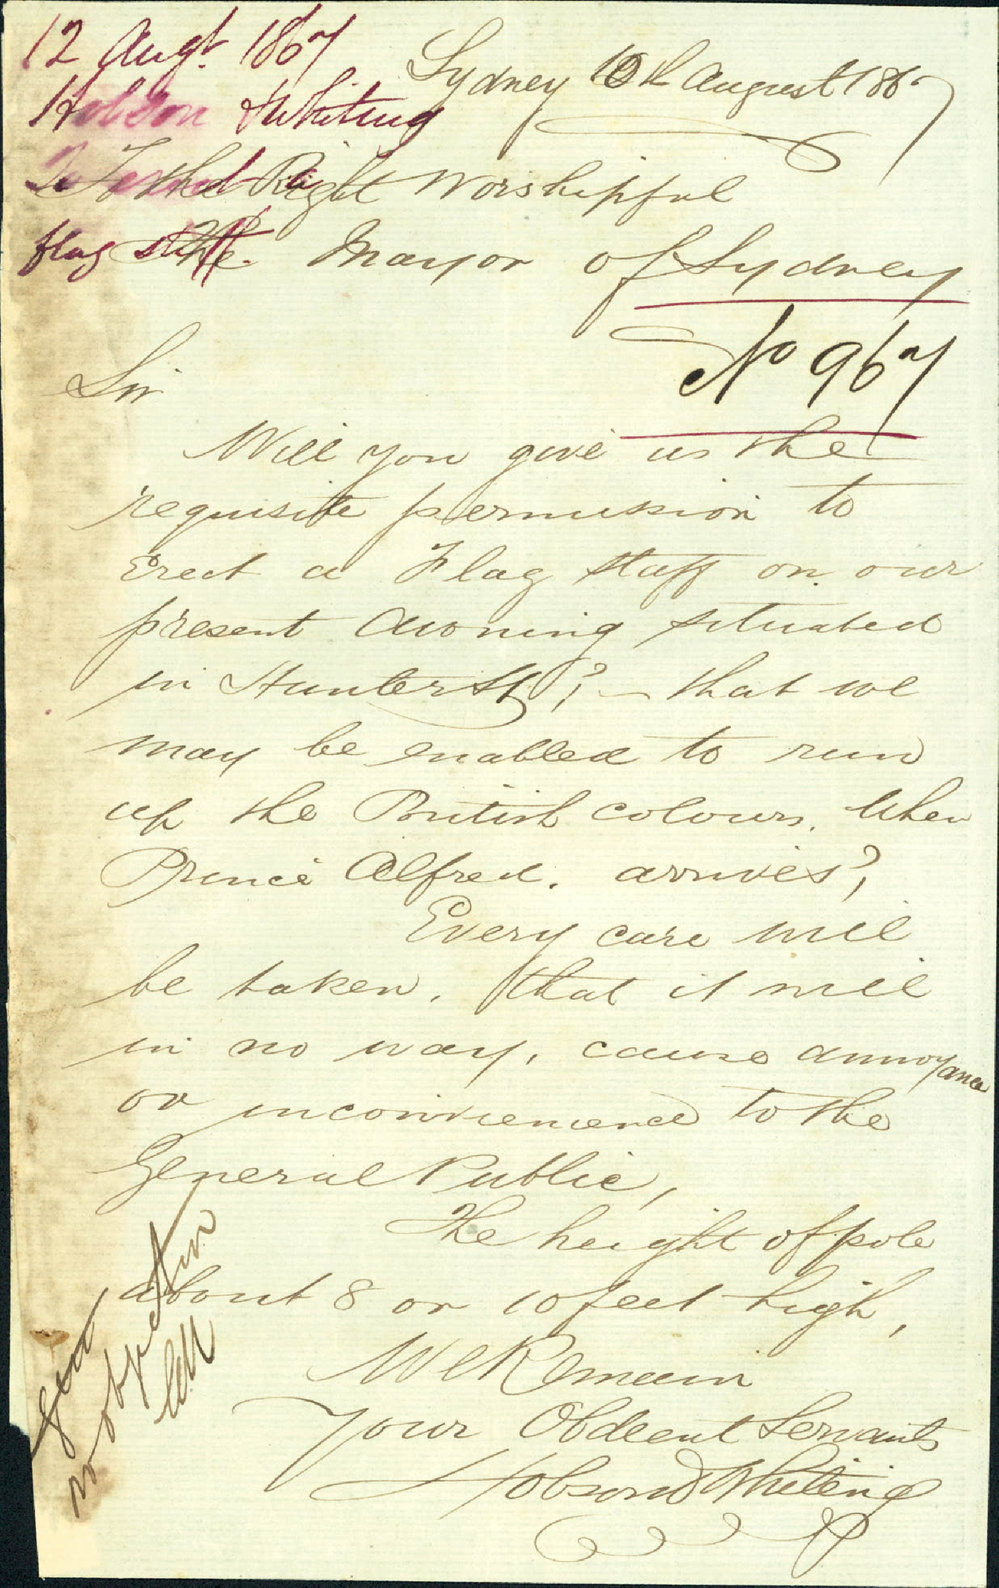 12 Augt. 1867
Hobson & Whiting
To erect
flag staff.
Sydney 10th August 1867
To the Right Worshipful
The Mayor of Sydney
No 967
Sir
Will you give us the
requisite permission to
Erect a Flag staff on our
present Awning situated
in Hunter St?, – that we
may be enabled to run
up the British colours. When
Prince Alfred. arrives?,
Every care will
be taken. that it will
in no way, cause annoyance
or inconvienence to the
General Public,
The height of pole
about 8 or 10 feet high,
We Remain
Your Obdeent Servants
Hobson & Whiting
no objection